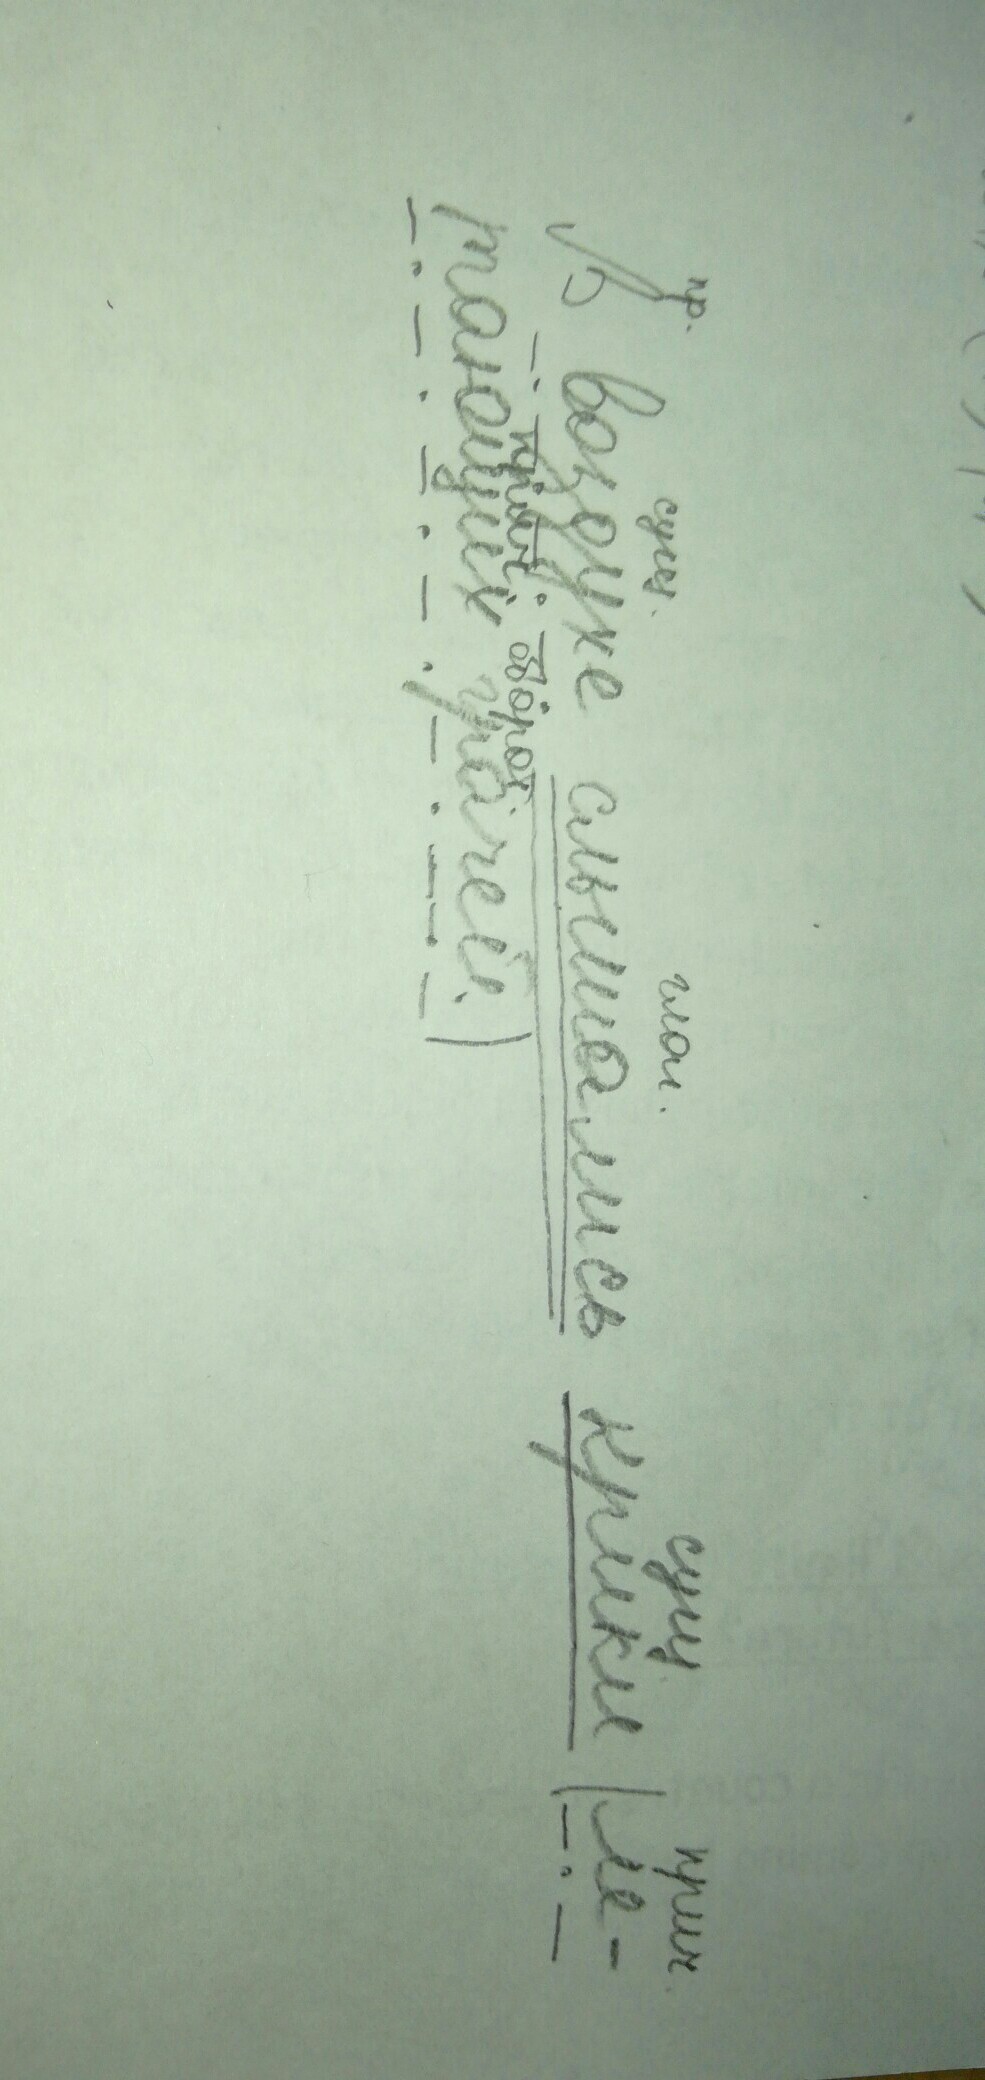 пр. сущ. глаг. сущ прич
В воздухе слышались крики ле-
прич. оборот
тающих грачей.